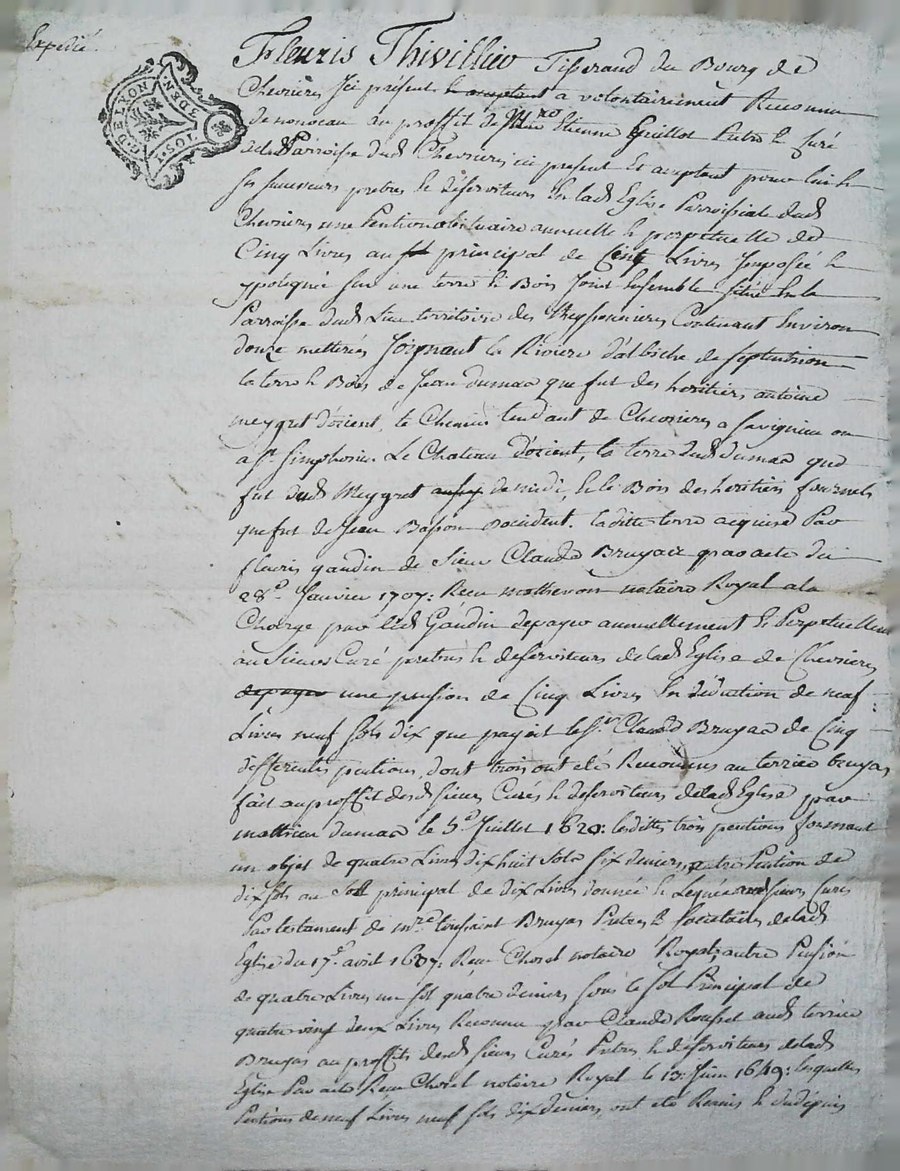 Expedié
G. DE LYON
1. SOL 4. DEN.
Fleuris Thivillier Tisserand du Bourg de
Chevrieres Ici présent le acceptant a volontairement Reconnu
de nouveau au proffit de Mre Etienne Guillot Pretre & Curé
de la Parroisse dud Chevrieres ici present et acceptant pour lui &
ses successeurs pretres & désserviteurs En lad Eglise Parroissiale dud
Chevrieres une Pention obituaire annuelle & perpetuelle de
Cinq Livres au sol principal de Cent Livres Imposée &
ypotiquée sur une terre & Bois Joint Ensemble situé En la
Parroisse dud Lieu territoire des Meyssonnieres Contenant Environ
douze metterés Joignant la Riviere d'albiche de septentrion
la terre & Bois de Jean dumas que fut des heritiers antoine
meygret d'orient, le Chemin tendant de Chevrieres a Savignieu ou
a St. Simphorien Le Chateau d'orient, la terre dud dumas que
fut dud Meygret de midi, & le Bois des heritiers fournel
que fut de Jean Basson occident. laditte terre acquise Par
fleuris gaudin de Sieur Claude Bruyas par acte du
28e. Janvier 1707: Recu mathevon notaire Royal a la
Charge par led Gaudin de payer annuellement & Perpetuellement
au Sieurs Curé pretres & desserviteurs de lad Eglise de Chevrieres
de payer une pension de Cinq Livres En déduction de neuf
Livres neuf sols dix que payoit le Sr. Claude Bruyas de Cinq
differentes pentions, dont trois ont été Reconnus au terrier bruyas
fait au proffit desd sieurs Curés & desserviteurs de lad Eglise par
matthieu dumas le 5e Juillet 1620: lesdittes trois pentions formant
un objet de quatre Livres dix huit sols six deniers, autre Pention de
dix sols au sol principal de dix Livres donnée & Leguée aud sieurs Curés
Par testament de mre. toussaint Bruyas Pretre & societaire de lad
Eglise du 17e. avril 1637: Recu Chorel notaire Royal, autre Pension
de quatre Livres un sol quatre deniers sous le sol Principal de
quatre vingt deux Livres Reconnu par Claude Rousset aud terrier
Bruyas au proffit desd sieurs Curés Pretres & désserviteurs de lad
Eglise Par acte Recu Chorel notaire Royal le 13: Juin 1649: lesquelles
Pentions de neuf Livres neuf sols dix deniers ont été &